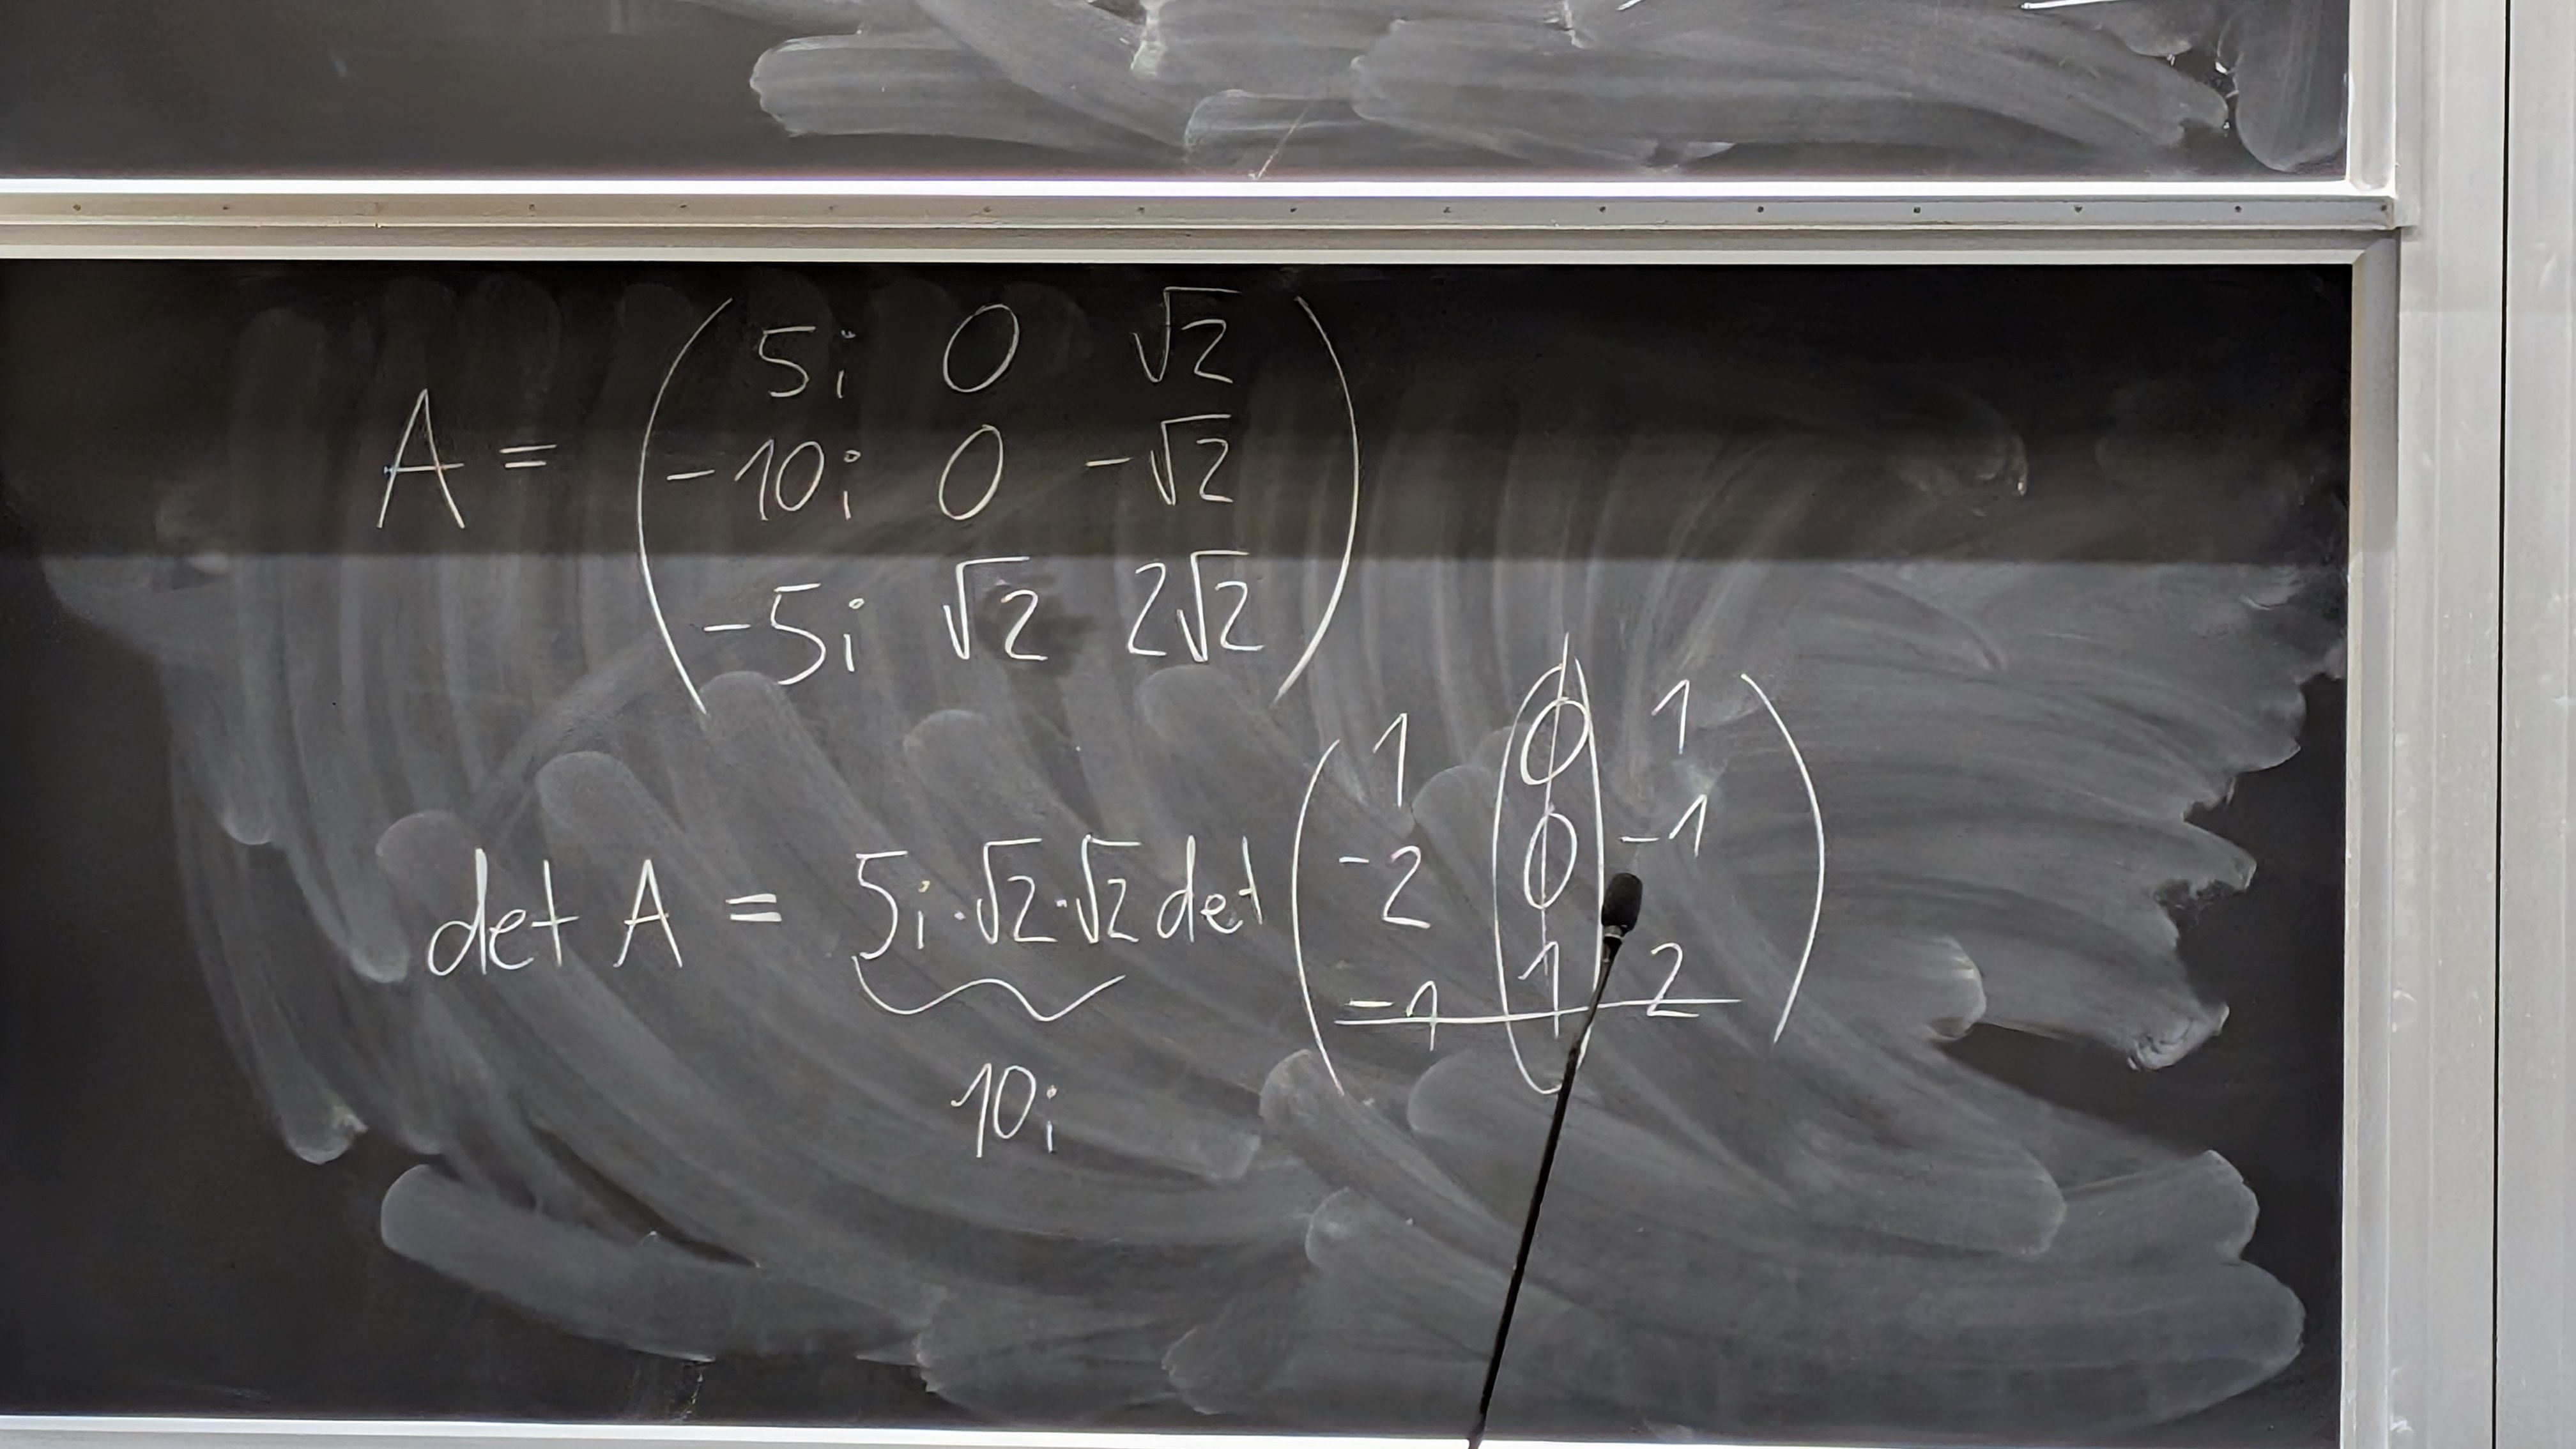 A = ( 5i 0 √2
-10i 0 -√2
-5i √2 2√2 )
det A = 5i·√2·√2 det ( 1 0 1
-2 0 -1
-1 1 2 )
10i